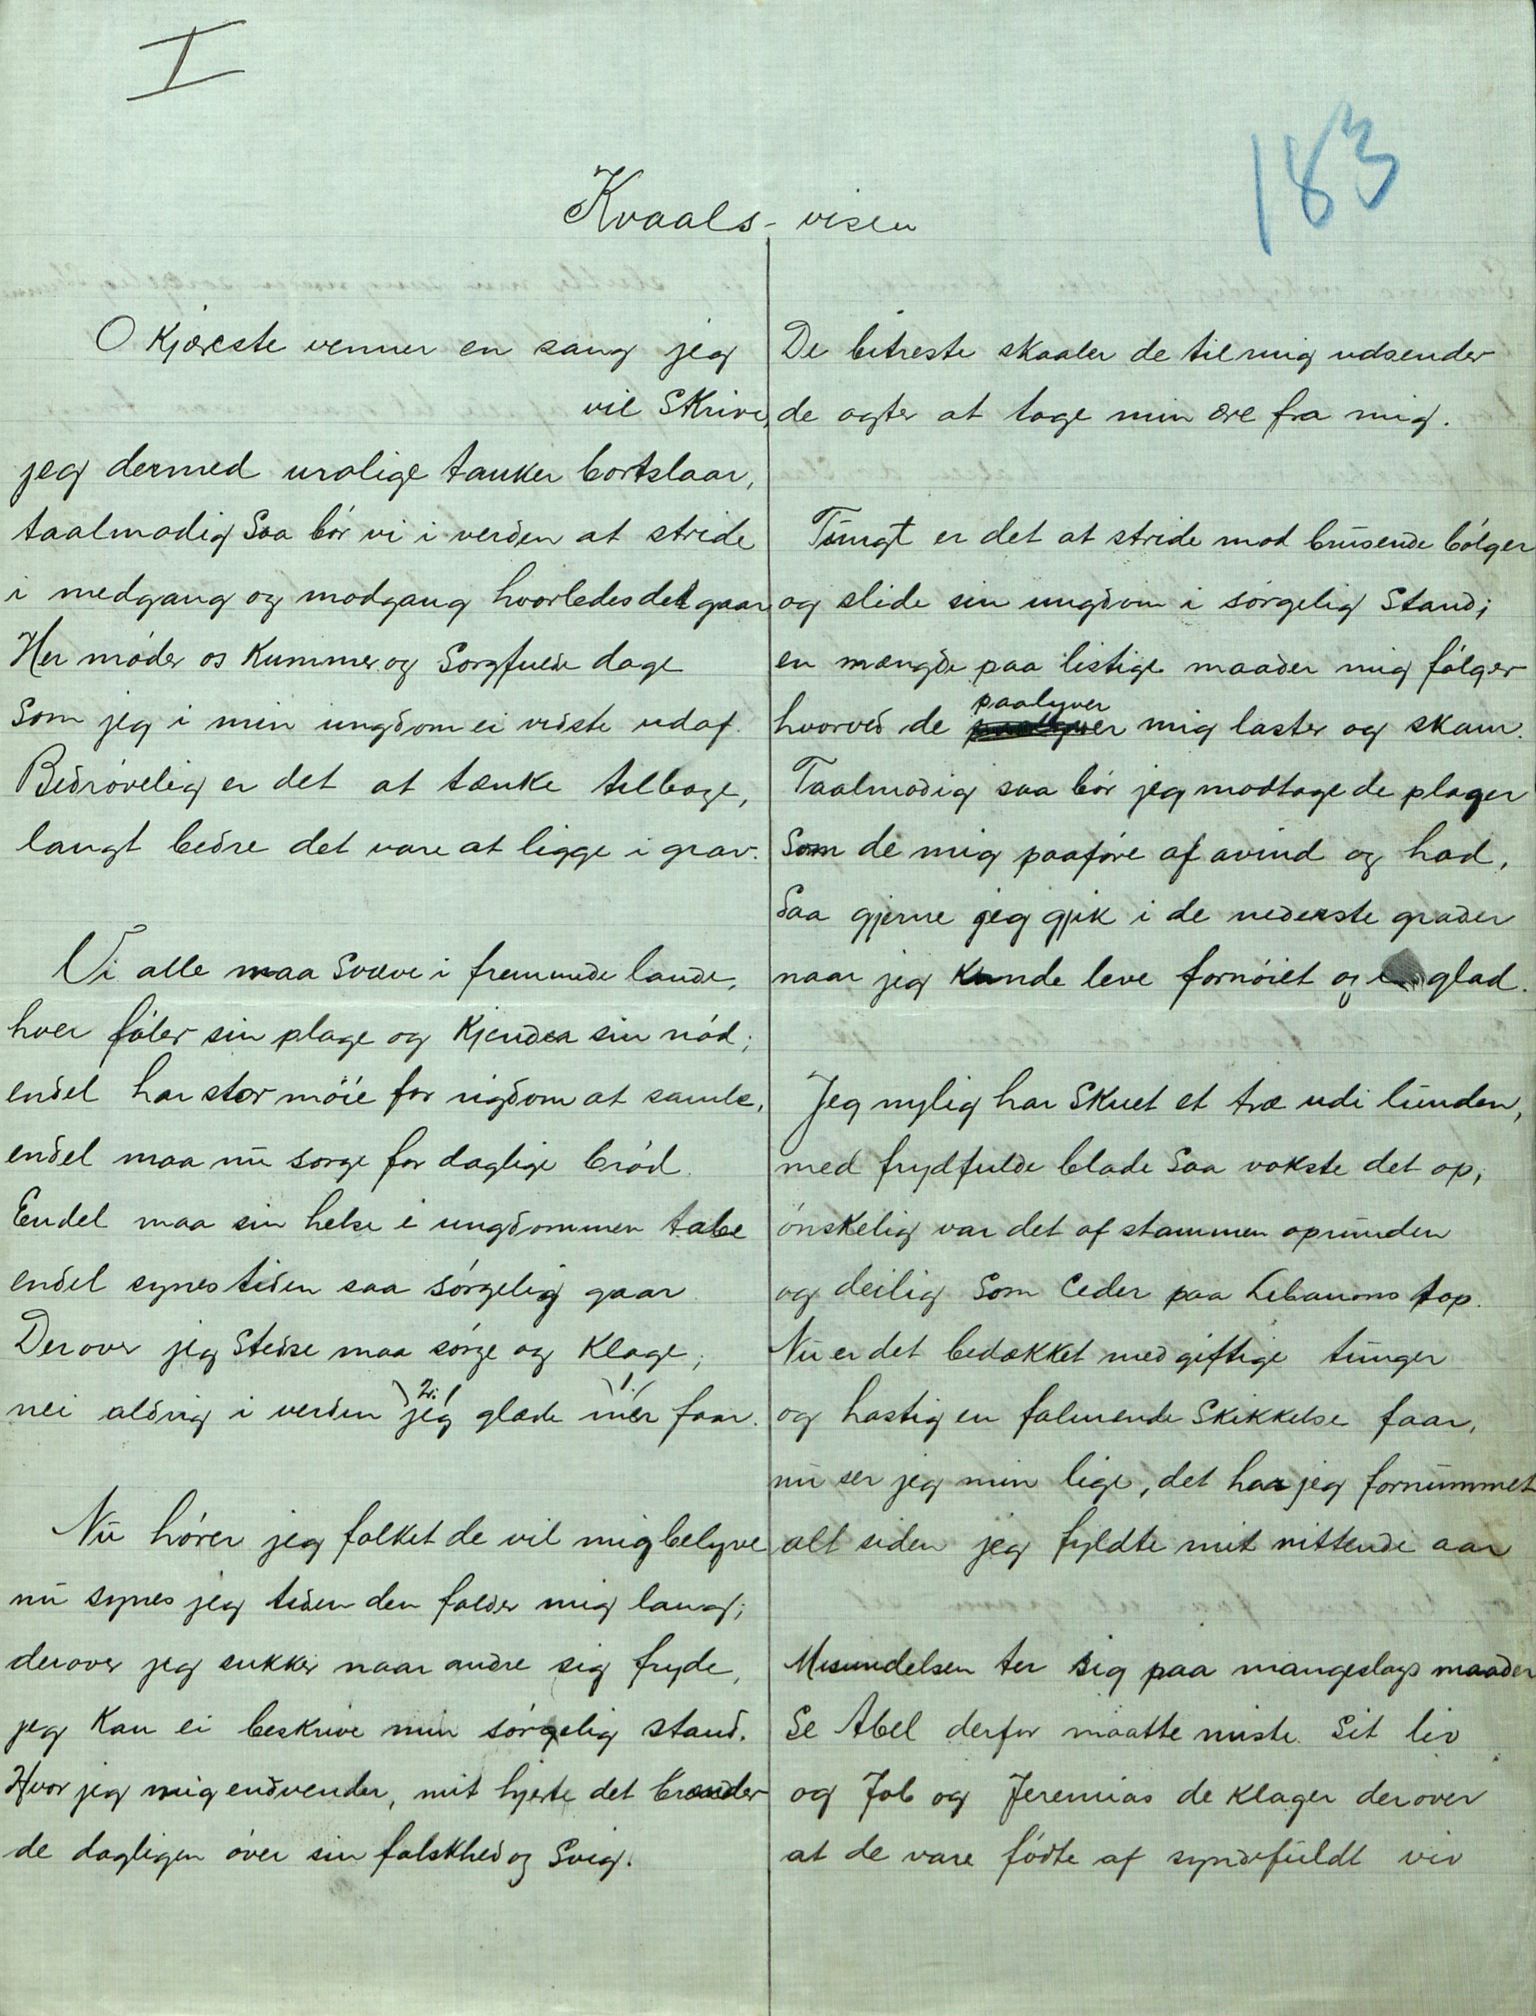 I
183
Kvaals-visen
O Kjæreste venner en sang jeg
vil Skrive,
jeg dermed urolige tanker bortslaar,
taalmodig Saa bör vi i verden at stride
i medgang og modgang hvorledes det gaar
Her möder os Kummer og Sorgfulde dage
Som jeg i min ungdom ei vidste udaf.
Bedrövelig er det at tænke tilbage,
langt bedre det vare at ligge i grav.
Vi alle maa Svæve i fremmede lande,
hver föler sin plage og Kjender sin nöd;
endel har stor möie for rigdom at samle,
endel maa nu sorge for daglige bröd.
Endel maa sin helse i ungdommen tabe
endel synes tiden saa sörgelig gaar.
Derover jeg Stedse maa sörge og Klage,
2. 1.
nei aldrig i verden jeg glæde mer faar.
Nu hörer jeg folket de vil mig belyve
nu synes jeg tiden den falder mig lang;
derover jeg sukker naar andre sig fryde,
jeg Kan ei beskrive min sörgelig stand.
Hvor jeg mig endvender, mit hjerte det brænder
de dagligen över sin falskhed og Svig.
De bitreste skaaler de til mig udsender
de agter at tage min ære fra mig.
Tungt er det at stride mod brusende bölger
og slide sin ungdom i sörgelig Stand;
en mængde paa listige maader mig fölger
paalyver
hvorved de mig laster og skam.
Taalmodig saa bör jeg modtage de plager
Som de mig paaföre af avind og had,
Saa gjerne jeg gjik i de nederste grader
naar jeg Kunde leve fornöiet og glad.
Jeg nylig har Skuet et træ udi lunden,
med frydfulde blade Saa vokste det op,
önskelig var det af stammen oprunden
og deilig Som Ceder paa Libanons top.
Nu er det bedækket med giftige tunger
og hastig en falmende Skikkelse faar,
nu ser jeg min lige, det har jeg fornummet
alt siden jeg fyldte mit nittende aar
Misundelsen ter sig paa mangeslags maader
Se Abel derfor maatte miste Sit liv
og Job og Jeremias de Klager derover
at de vare födte af syndefuldt viv